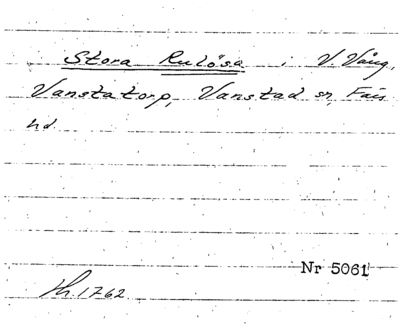 Stora Rulösa. V. Vång,
Vanstatorp, Vanstad sn, Färs
hd.
Nr 5061
Lh. 1762